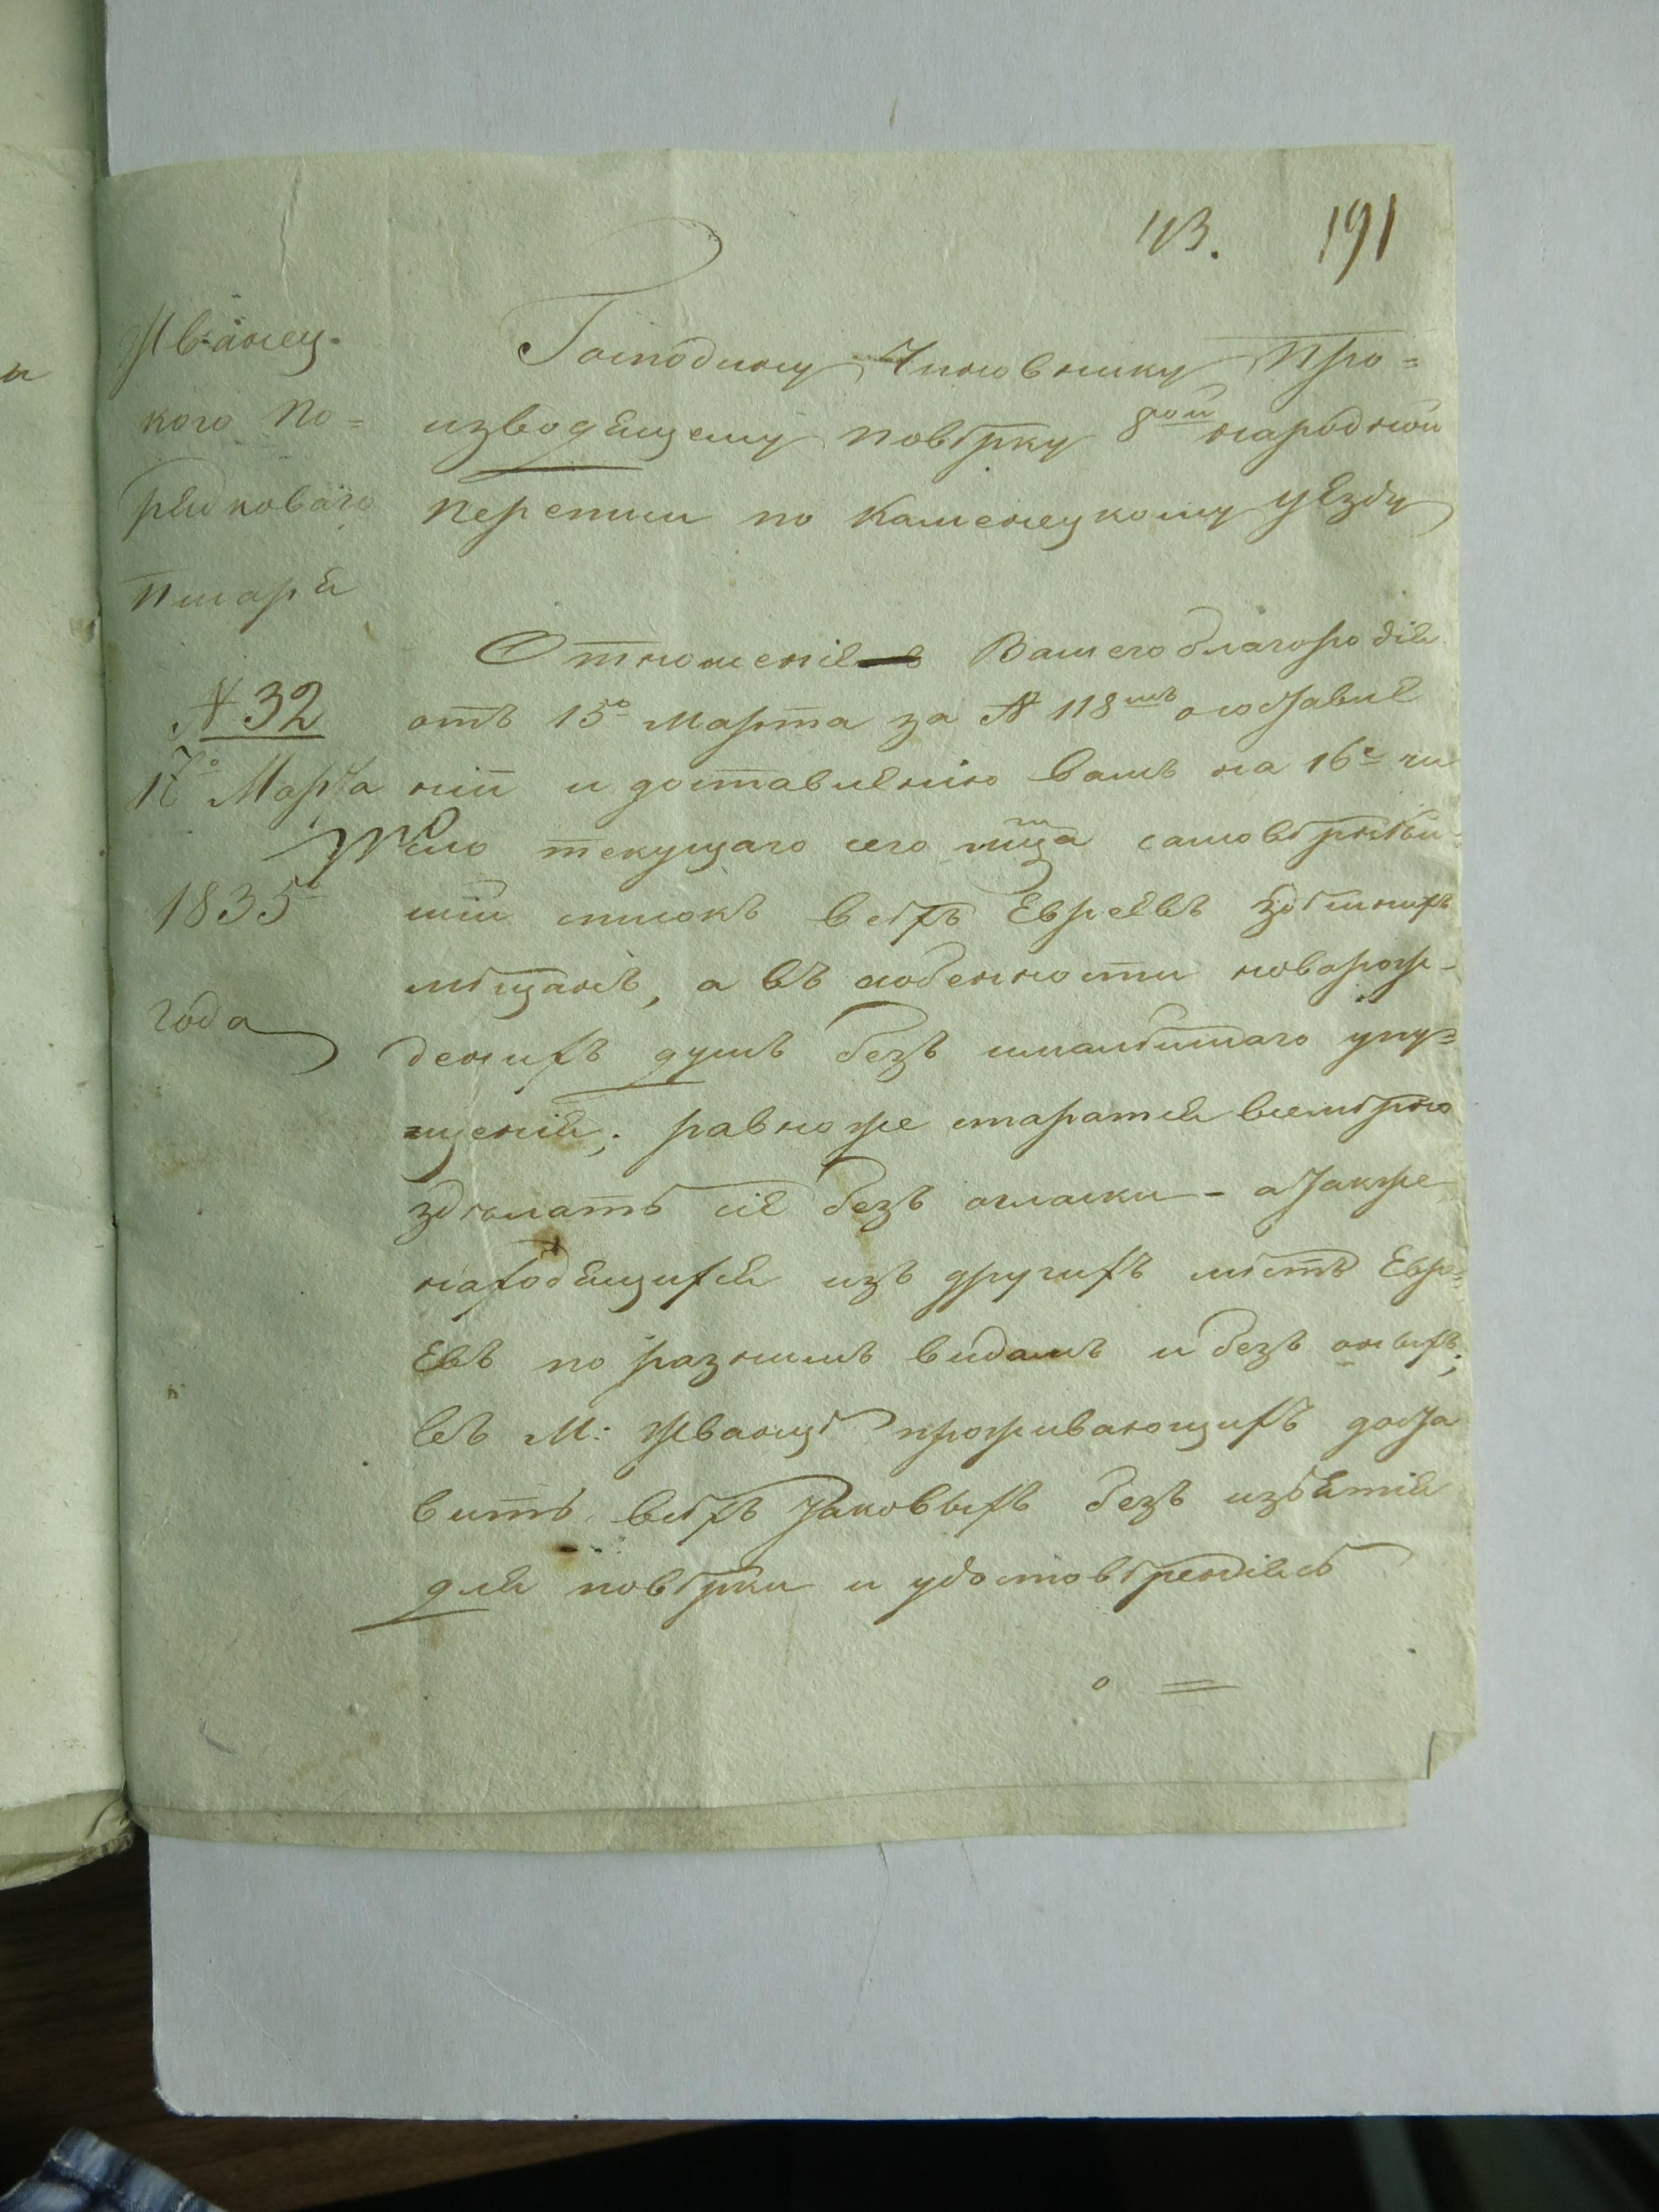 193. 191
Жванец-
кого По=
рядковаго
Писаря
N 32
17го Марта
1835го
года
Господину Чиновнику Про=
изводящему повѣрку 8рой народной
переписи по Каменецкому уѣзду
Отношеніе Вашего благородія
отъ 15го Марта за N 118мъ о составле
ніи и доставленію вамъ на 16е чи
сло текущаго сего мца самовѣрнѣй-
шій списокъ всѣхъ Евреевъ здѣшнихъ
мѣщанъ, а въ особенности новорож-
денихъ душъ безъ малѣйшаго упу=
щенія; равноже старатся всемѣрно
здѣлать сіе безъ огласки - а также
находящихся изъ другихъ мѣстъ Евре=
евъ по разнимъ видамъ и безъ оныхъ;
въ М: Жванцѣ проживающихъ доста
вить всѣхъ таковыхъ безъ изъятія
для повѣрки и удостовѣренія